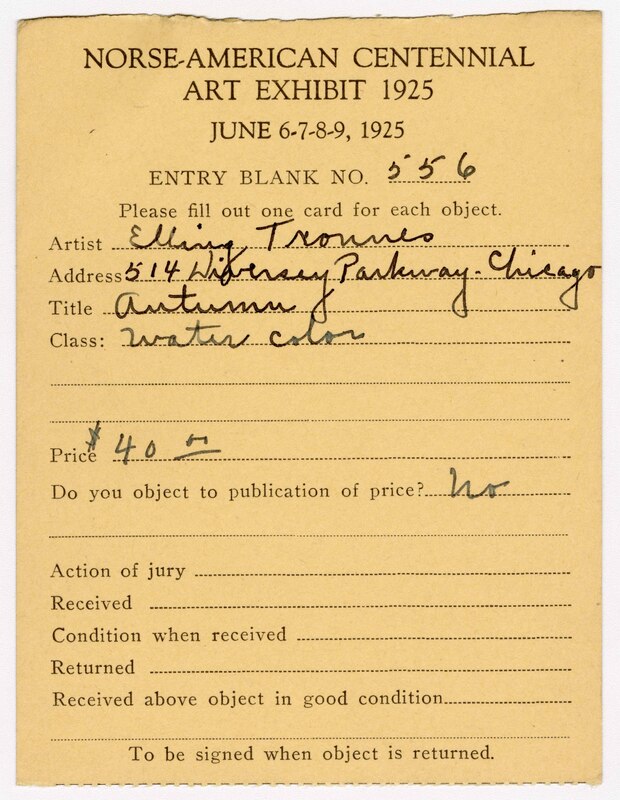 NORSE-AMERICAN CENTENNIAL
ART EXHIBIT 1925
JUNE 6-7-8-9, 1925
ENTRY BLANK NO. 556
Please fill out one card for each object.
Artist Elling Tronnes
Address 514 Diversey Parkway - Chicago
Title Autumn
Class: Water color
Price $40 00
Do you object to publication of price? No
Action of jury
Received
Condition when received
Returned
Received above object in good condition
To be signed when object is returned.